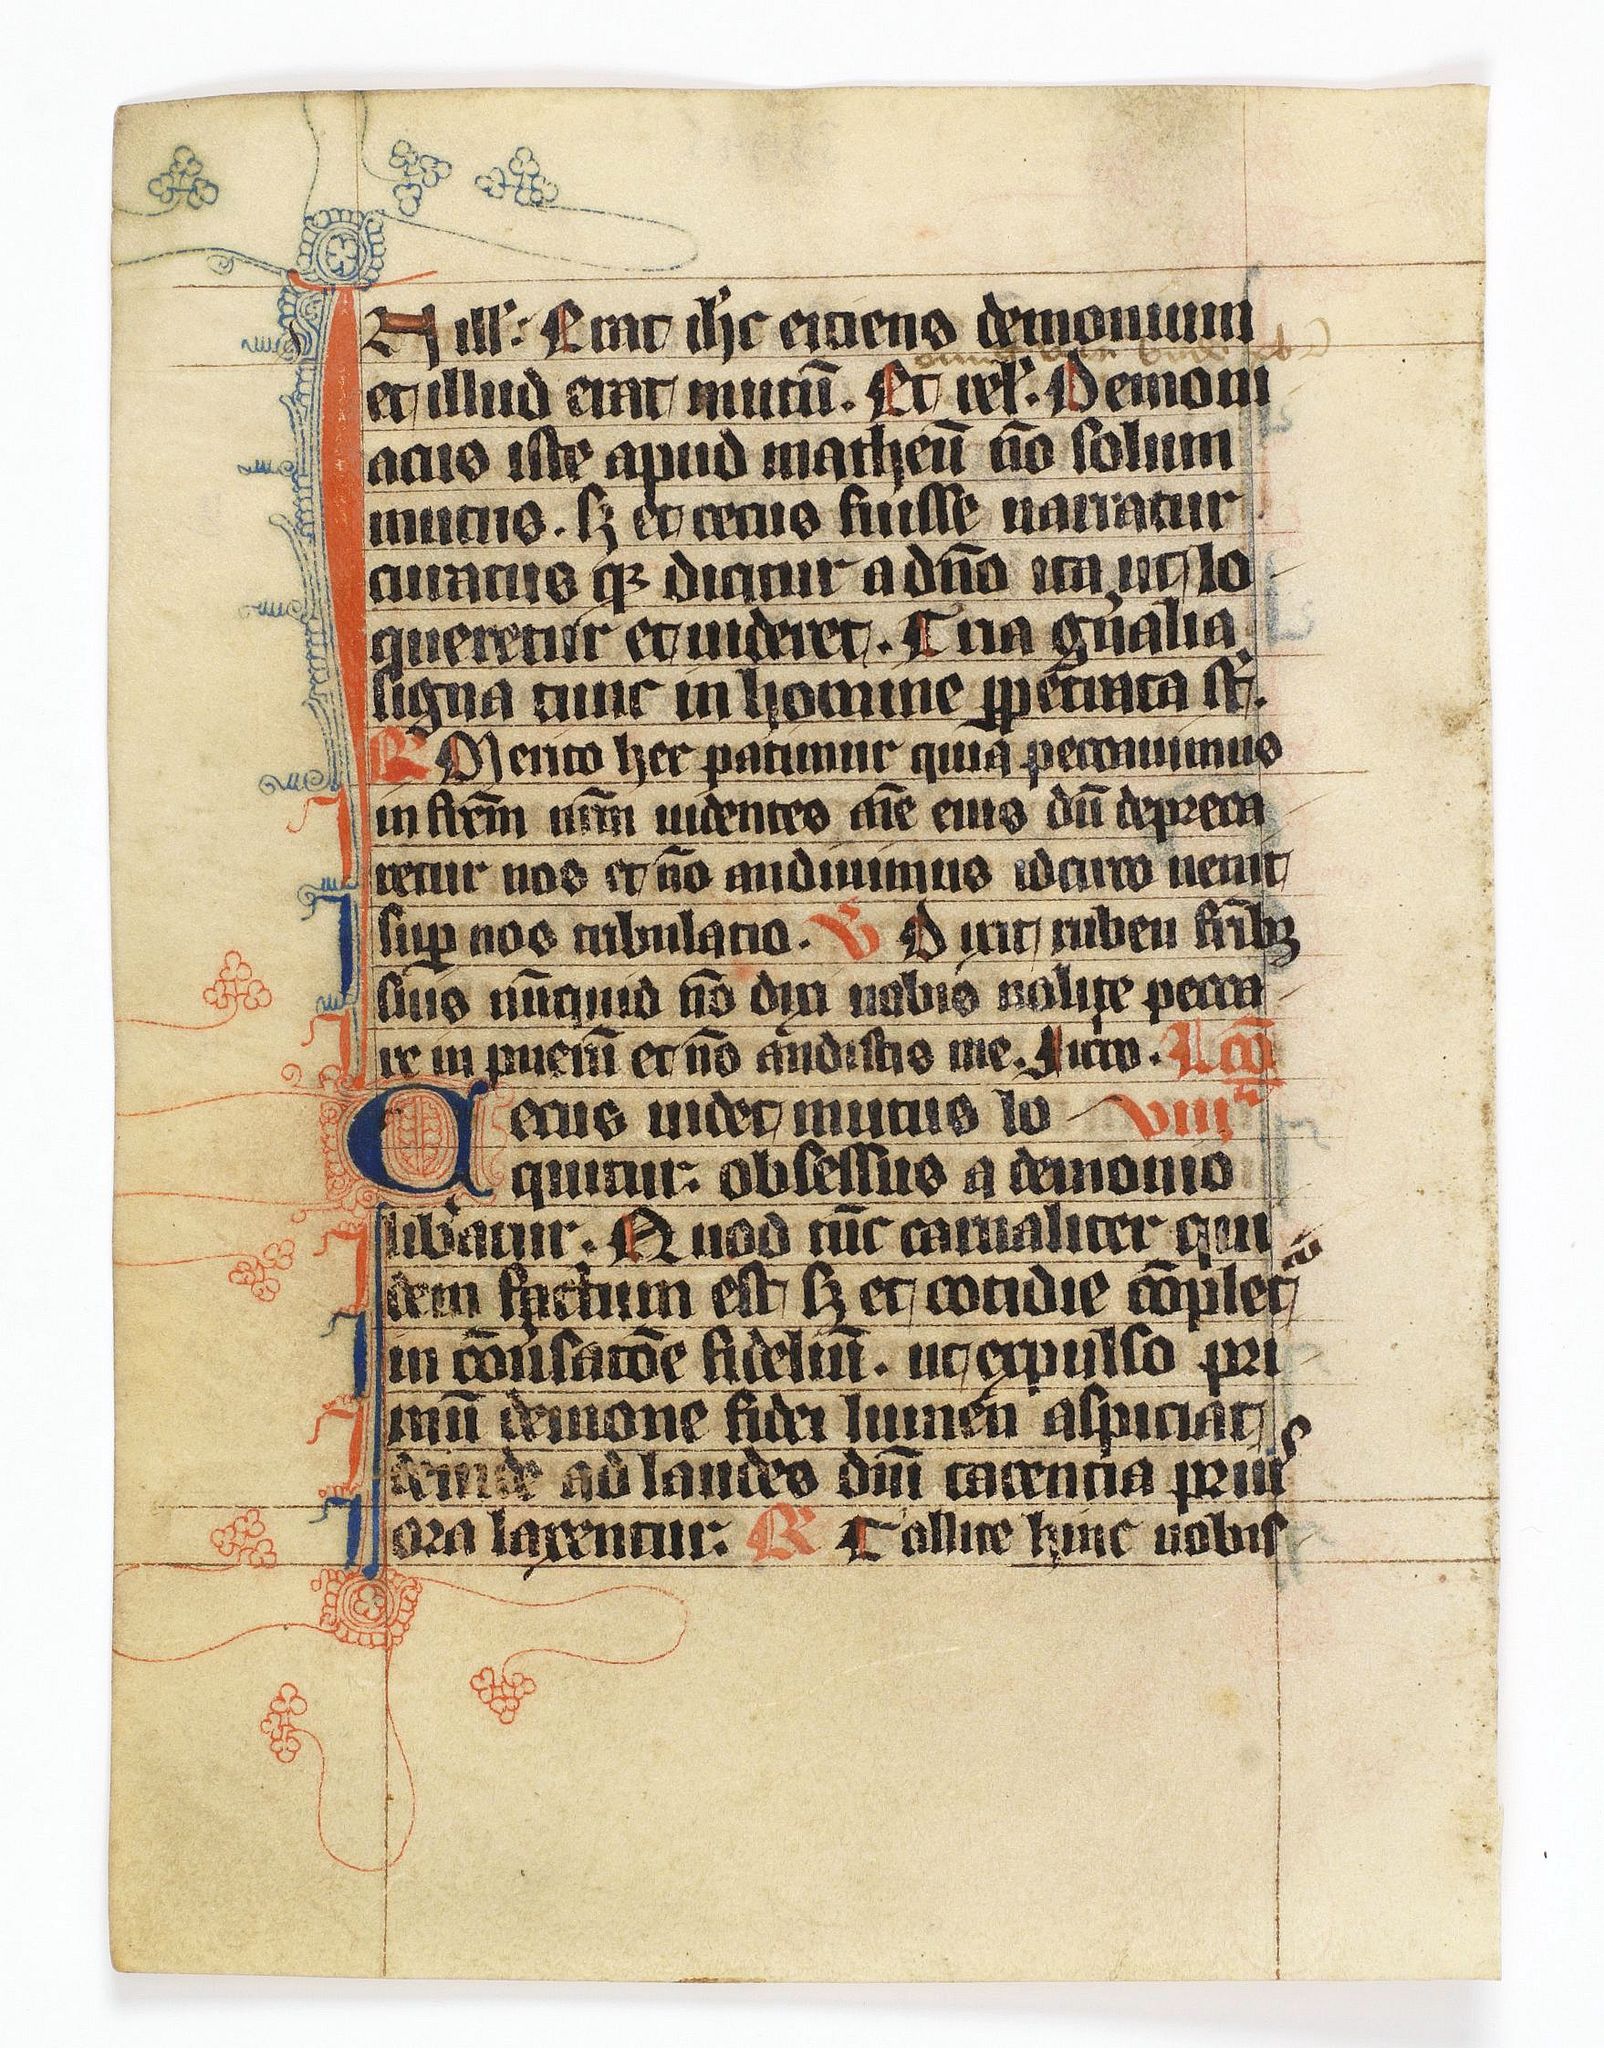 In ill'. Erat ih̄c eiciens demonium
et illud erat mutū. Et rel'. Demoni
acus iste apud matheū nō solum
mutus. sꝫ et cecus fuisse narratur
curatus qꝫ dicitur a dn̄o ita ut lo
queretur et uideret. Tria gn̄alia
signa tunc in homine ꝑpetrata st̄.
R Merito hec patimur quia peccauimus
in frēm nr̄m uidentes aīe eius dū depreca
retur nos et nō audiuimus idcirco uenit
suꝑ nos tribulatio. V Dixit ruben fr̄ibꝫ
suis nūquid nō dixi uobis nolite pecca
re in puerū et nō audistis me. Iicco. Lc̄o
Cecus uidet mutus lo viii
quitur. obsessus a demonio
lib̄atur. Quod tūc carnaliter qui
dem factum est sꝫ et cotidie cōplet
in cōuersatōe fidelium. ut expulso pri
mū demone fidei lumen aspiciat
deinde ad laudes dīni tacentia priꝰ
ora laxentur. R Tollite hinc uobis